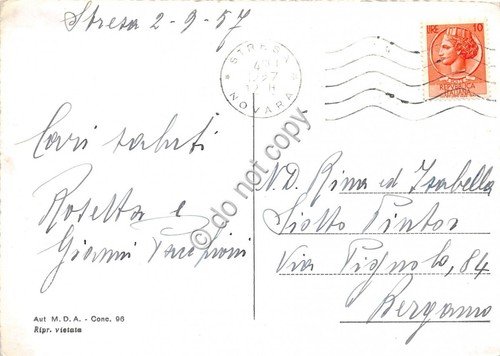 Stresa 2-9-57
LIRE 10
REPVBBLICA
ITALIANA
STRESA
NOVARA
Cari saluti
Rosetta e
Gianni
N.D. Rina ed Isabella
Siotto Pintor
Via Pignolo, 84
Bergamo
© do not copy
Aut M. D. A. - Conc. 96
Ripr. vietata